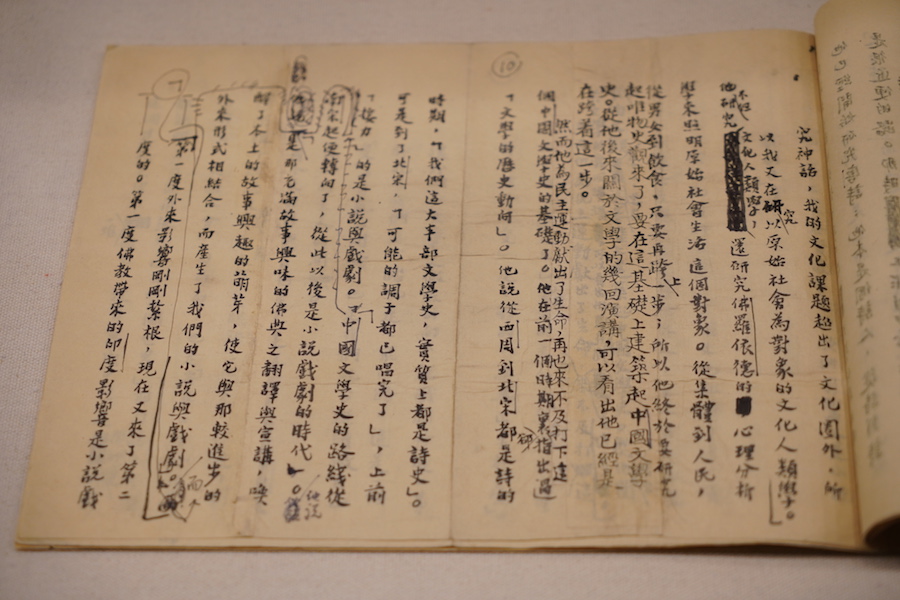 究神話，我的文化課題超出了文化圈外。所
以我又在研究以原始社會為對象的文化人類學。
他不但研究文化人類學，還研究佛羅依德的心理分析
學來照明原始社會生活這個對象。從集體到人民，
從男女到飲食，只要再跨上一步；所以他終於要研究
起唯物史觀來了，要在這基礎上建築起中國文學
史。從他後來關於文學的幾回演講，可以看出他已經是
在跨着這一步。
然而他為民主運動獻出了生命，再也來不及打下這
個中國文學史的基礎了。他在前一個時期裏指出過
「文學的歷史動向」。他說從西周到北宋都是詩的
⑩
時期，「我們這大半部文學史，實質上都是詩史」。
可是到了北宋，「可能的調子都已唱完了」，上前
「接力」的是小說與戲劇。「中國文學史的路綫從
南宋起便轉向了，從此以後是小說戲劇的時代」。他說
是那充滿故事興味的佛典之翻譯與宣講，喚
醒了本土的故事興趣的萌芽，使它與那較進步的
外來形式相結合，而產生了我們的小說與戲劇。而
第一度外來影響剛剛紮根，現在又來了第二
度的。第一度佛教帶來的印度影響是小說戲